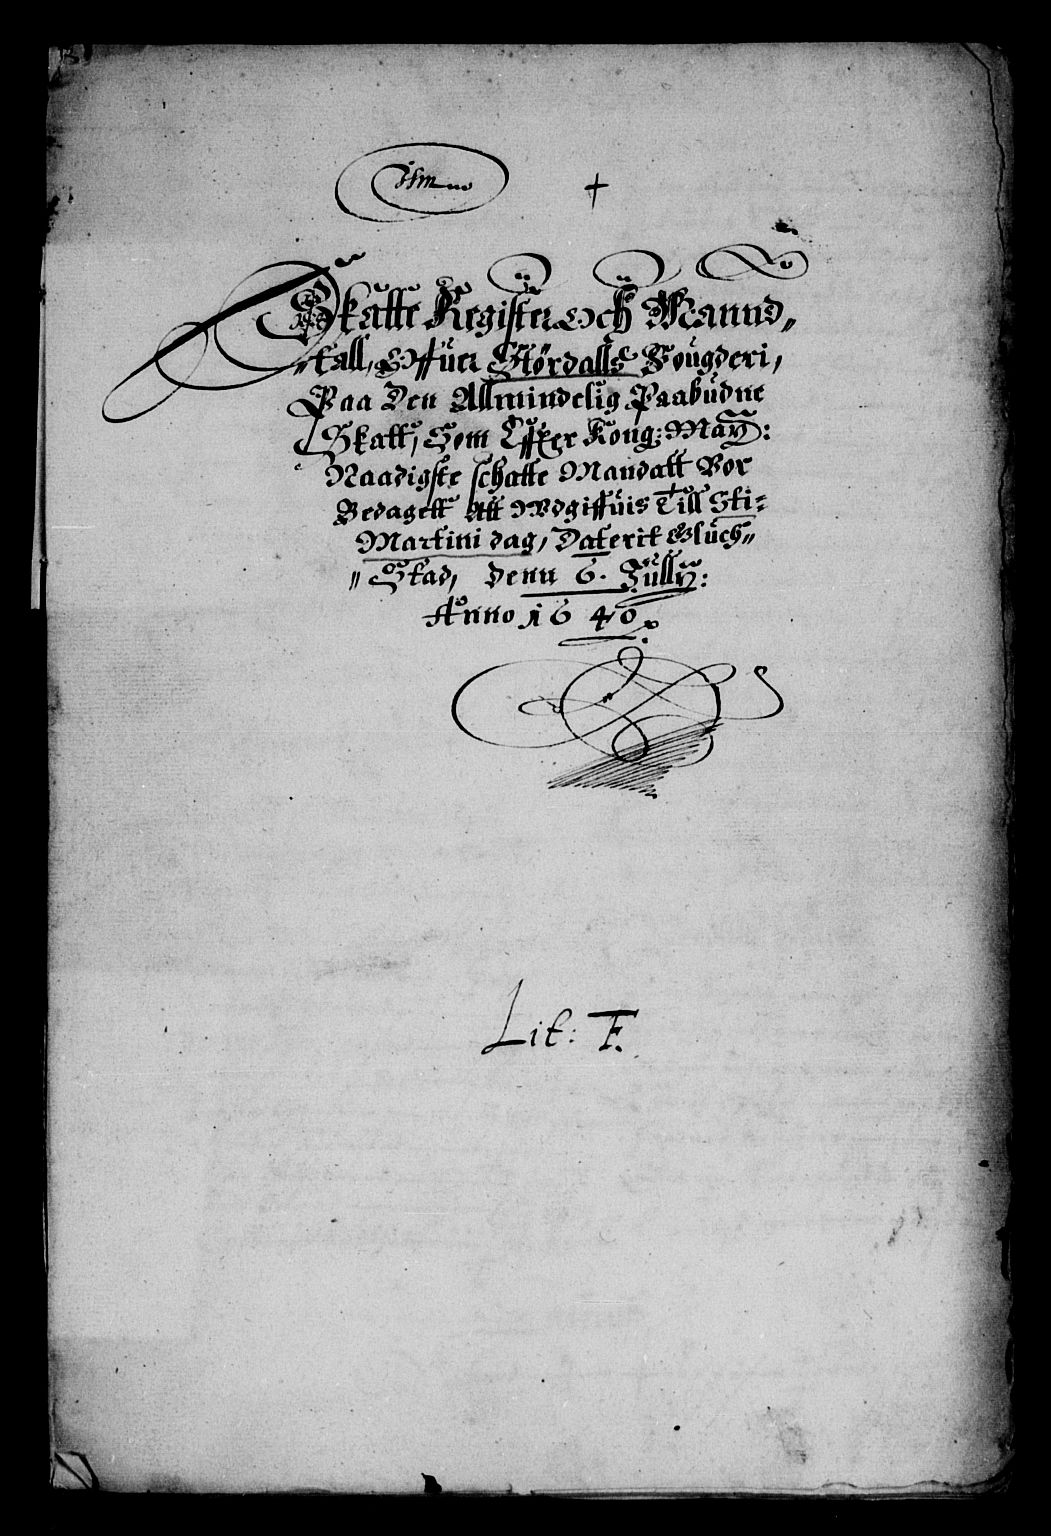 +
Skatte Register och Mannd„
„tall, Offuer Størdalls Fougderi,
Paa Den Allmindelig Paabudne
Skatt, Som Effter Kong: May:
Naadigste schatte Mandatt Vor
Bedagett Att Wdgiffuis Till Sti=
Martini dag, Daterit Gluch„
„Stad, Denn 6. Jully:
Anno 1640.
Lit: F.